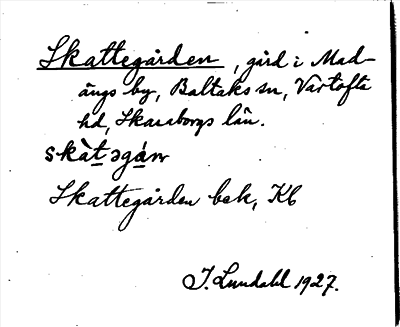 Skattegården, gård i Mad-
ängs by, Baltaks sn, Vartofta
hd, Skaraborgs län.
skàtəgáɳ
Skattegården bek, Kb
I. Lundahl 1927.